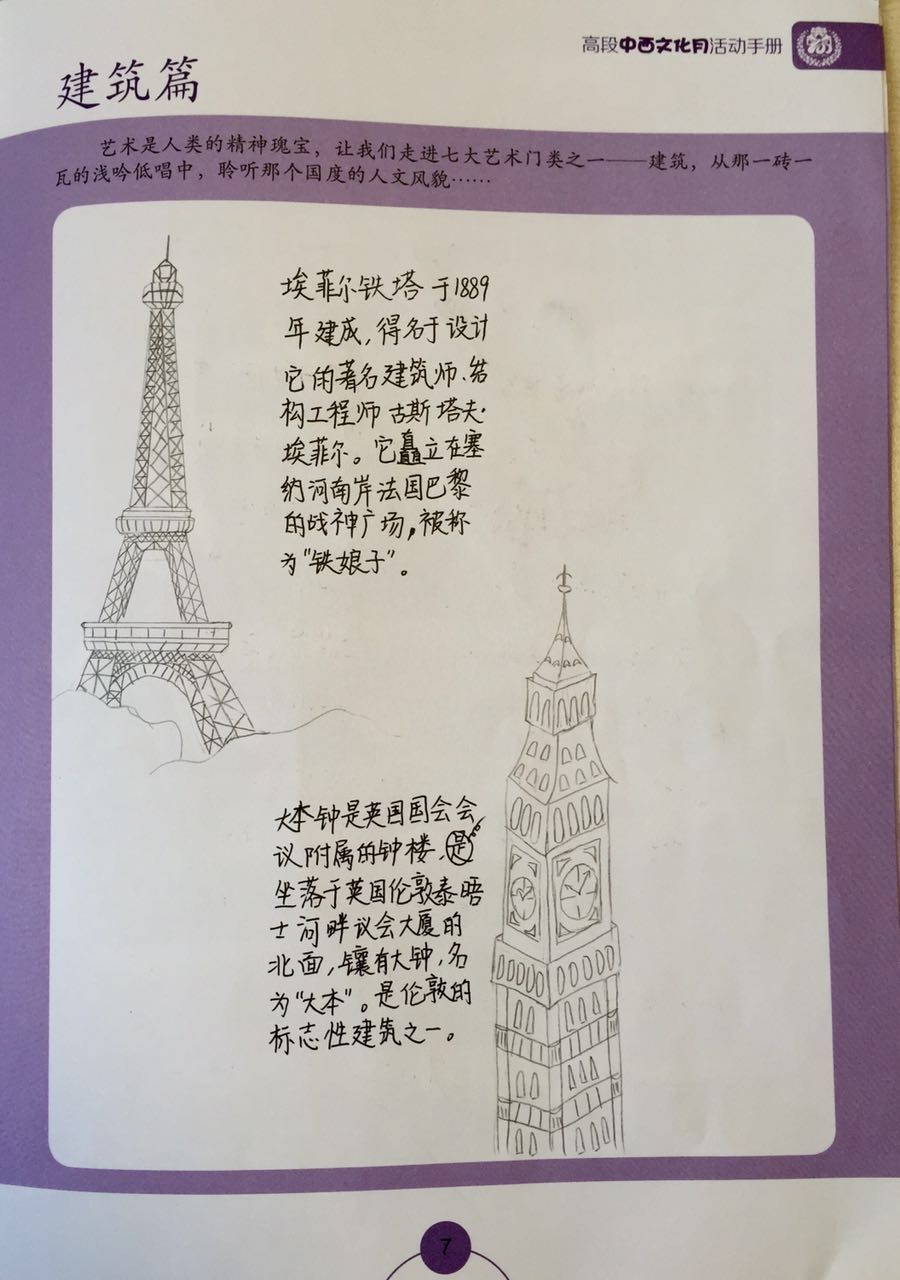 高段中西文化月活动手册
建筑篇
艺术是人类的精神瑰宝，让我们走进七大艺术门类之一——建筑，从那一砖一
瓦的浅吟低唱中，聆听那个国度的人文风貌……
埃菲尔铁塔于1889
年建成，得名于设计
它的著名建筑师、结
构工程师古斯塔夫·
埃菲尔。它矗立在塞
纳河南岸法国巴黎
的战神广场，被称
为“铁娘子”。
大本钟是英国国会会
议附属的钟楼，是
坐落于英国伦敦泰晤
士河畔议会大厦的
北面，镶有大钟，名
为“大本”。是伦敦的
标志性建筑之一。
7